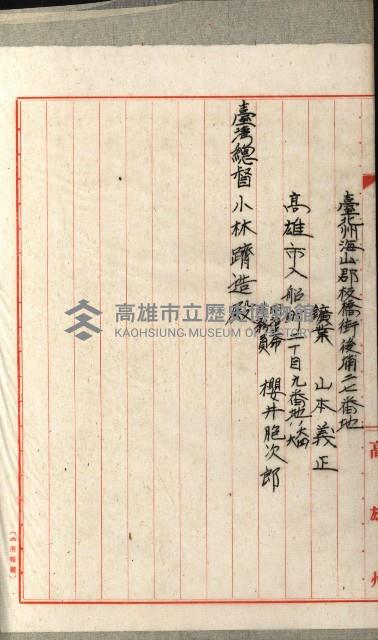 臺北州海山郡板橋街後埔二七番地
鑛業 山本義正
高雄市入船町二丁目九番地ノ
櫻井胞次郎
臺灣總督 小林躋造殿
高雄州
高雄市立歷史博物館
KAOHSIUNG MUSEUM OF HISTORY